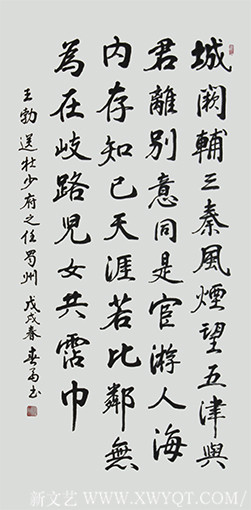 城阙輔三秦風煙望五津與
君離别意同是宦游人海
内存知己天涯若比鄰無
為在岐路兒女共霑巾
王勃送杜少府之任蜀州戊戌春
新文艺 www.xwyqt.com